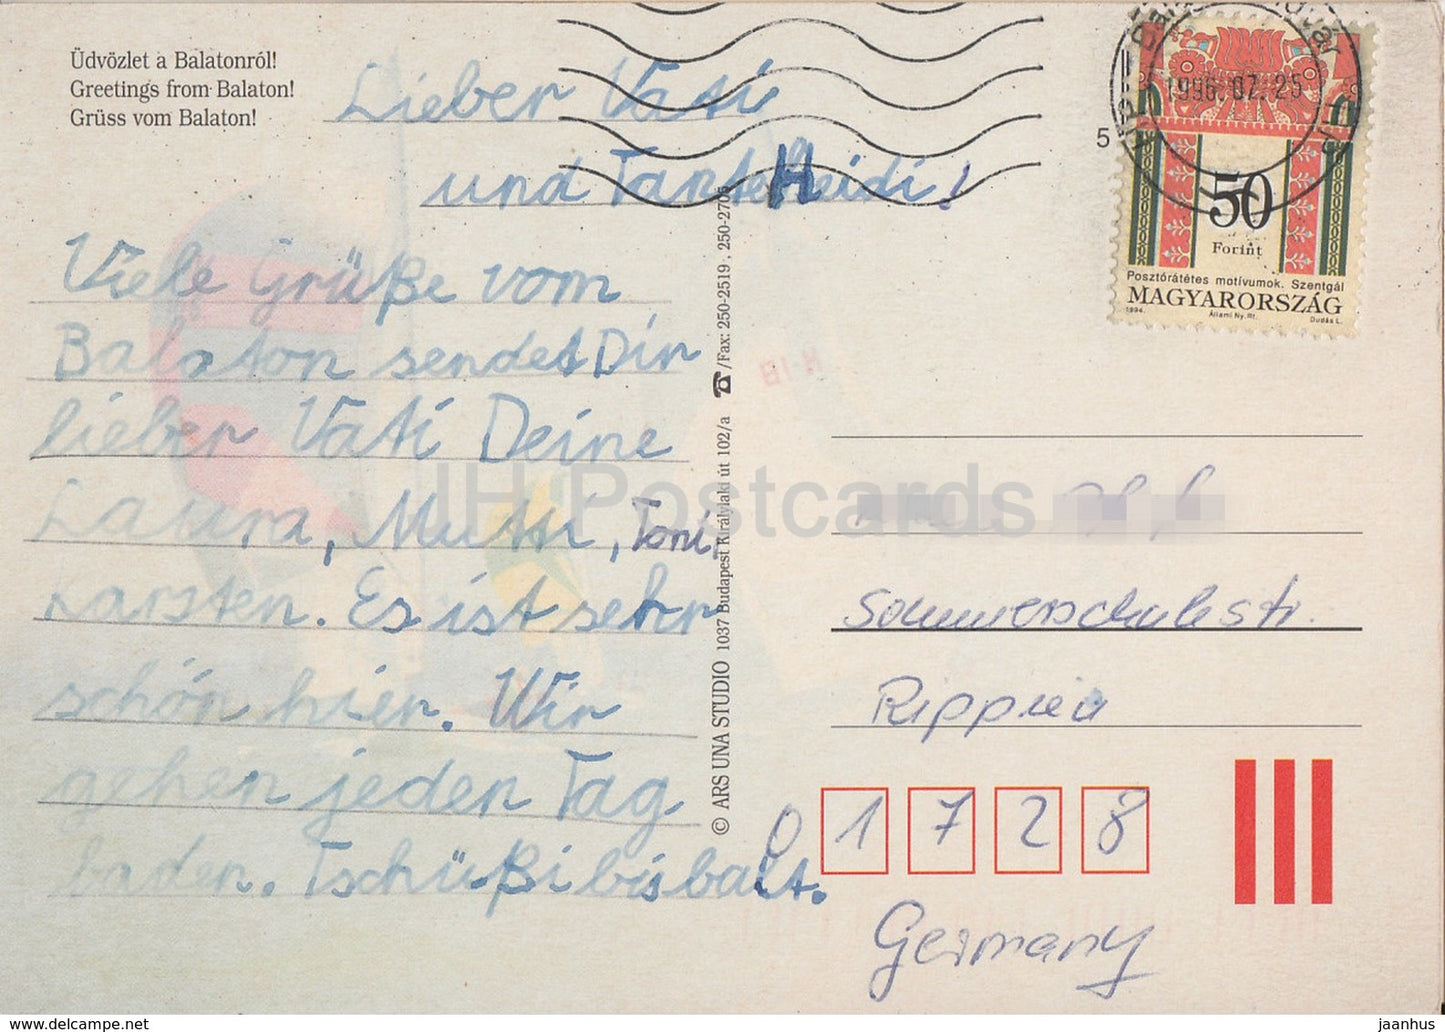 Üdvözlet a Balatonról!
Greetings from Balaton!
Grüss vom Balaton!
Lieber Vati
und Tante Heidi!
Viele Grüße vom
Balaton sendet Dir
lieber Vati Deine
Laura, Mutti, Toni,
Karsten. Es ist sehr
schön hier. Wir
gehen jeden Tag
baden. Tschüßi bis balt.
© ARS UNA STUDIO 1037 Budapest Királylaki út 102/a ☎/Fax: 250-2519, 250-2705
1996 07. 25
5
50
Forint
Posztórátétes motívumok. Szentgál
MAGYARORSZÁG
1994. Állami Ny. Rt. Dudás L.
Sommerschuhstr.
Rippien
01728
Germany
IH Postcards
jaanhus
delcampe.net